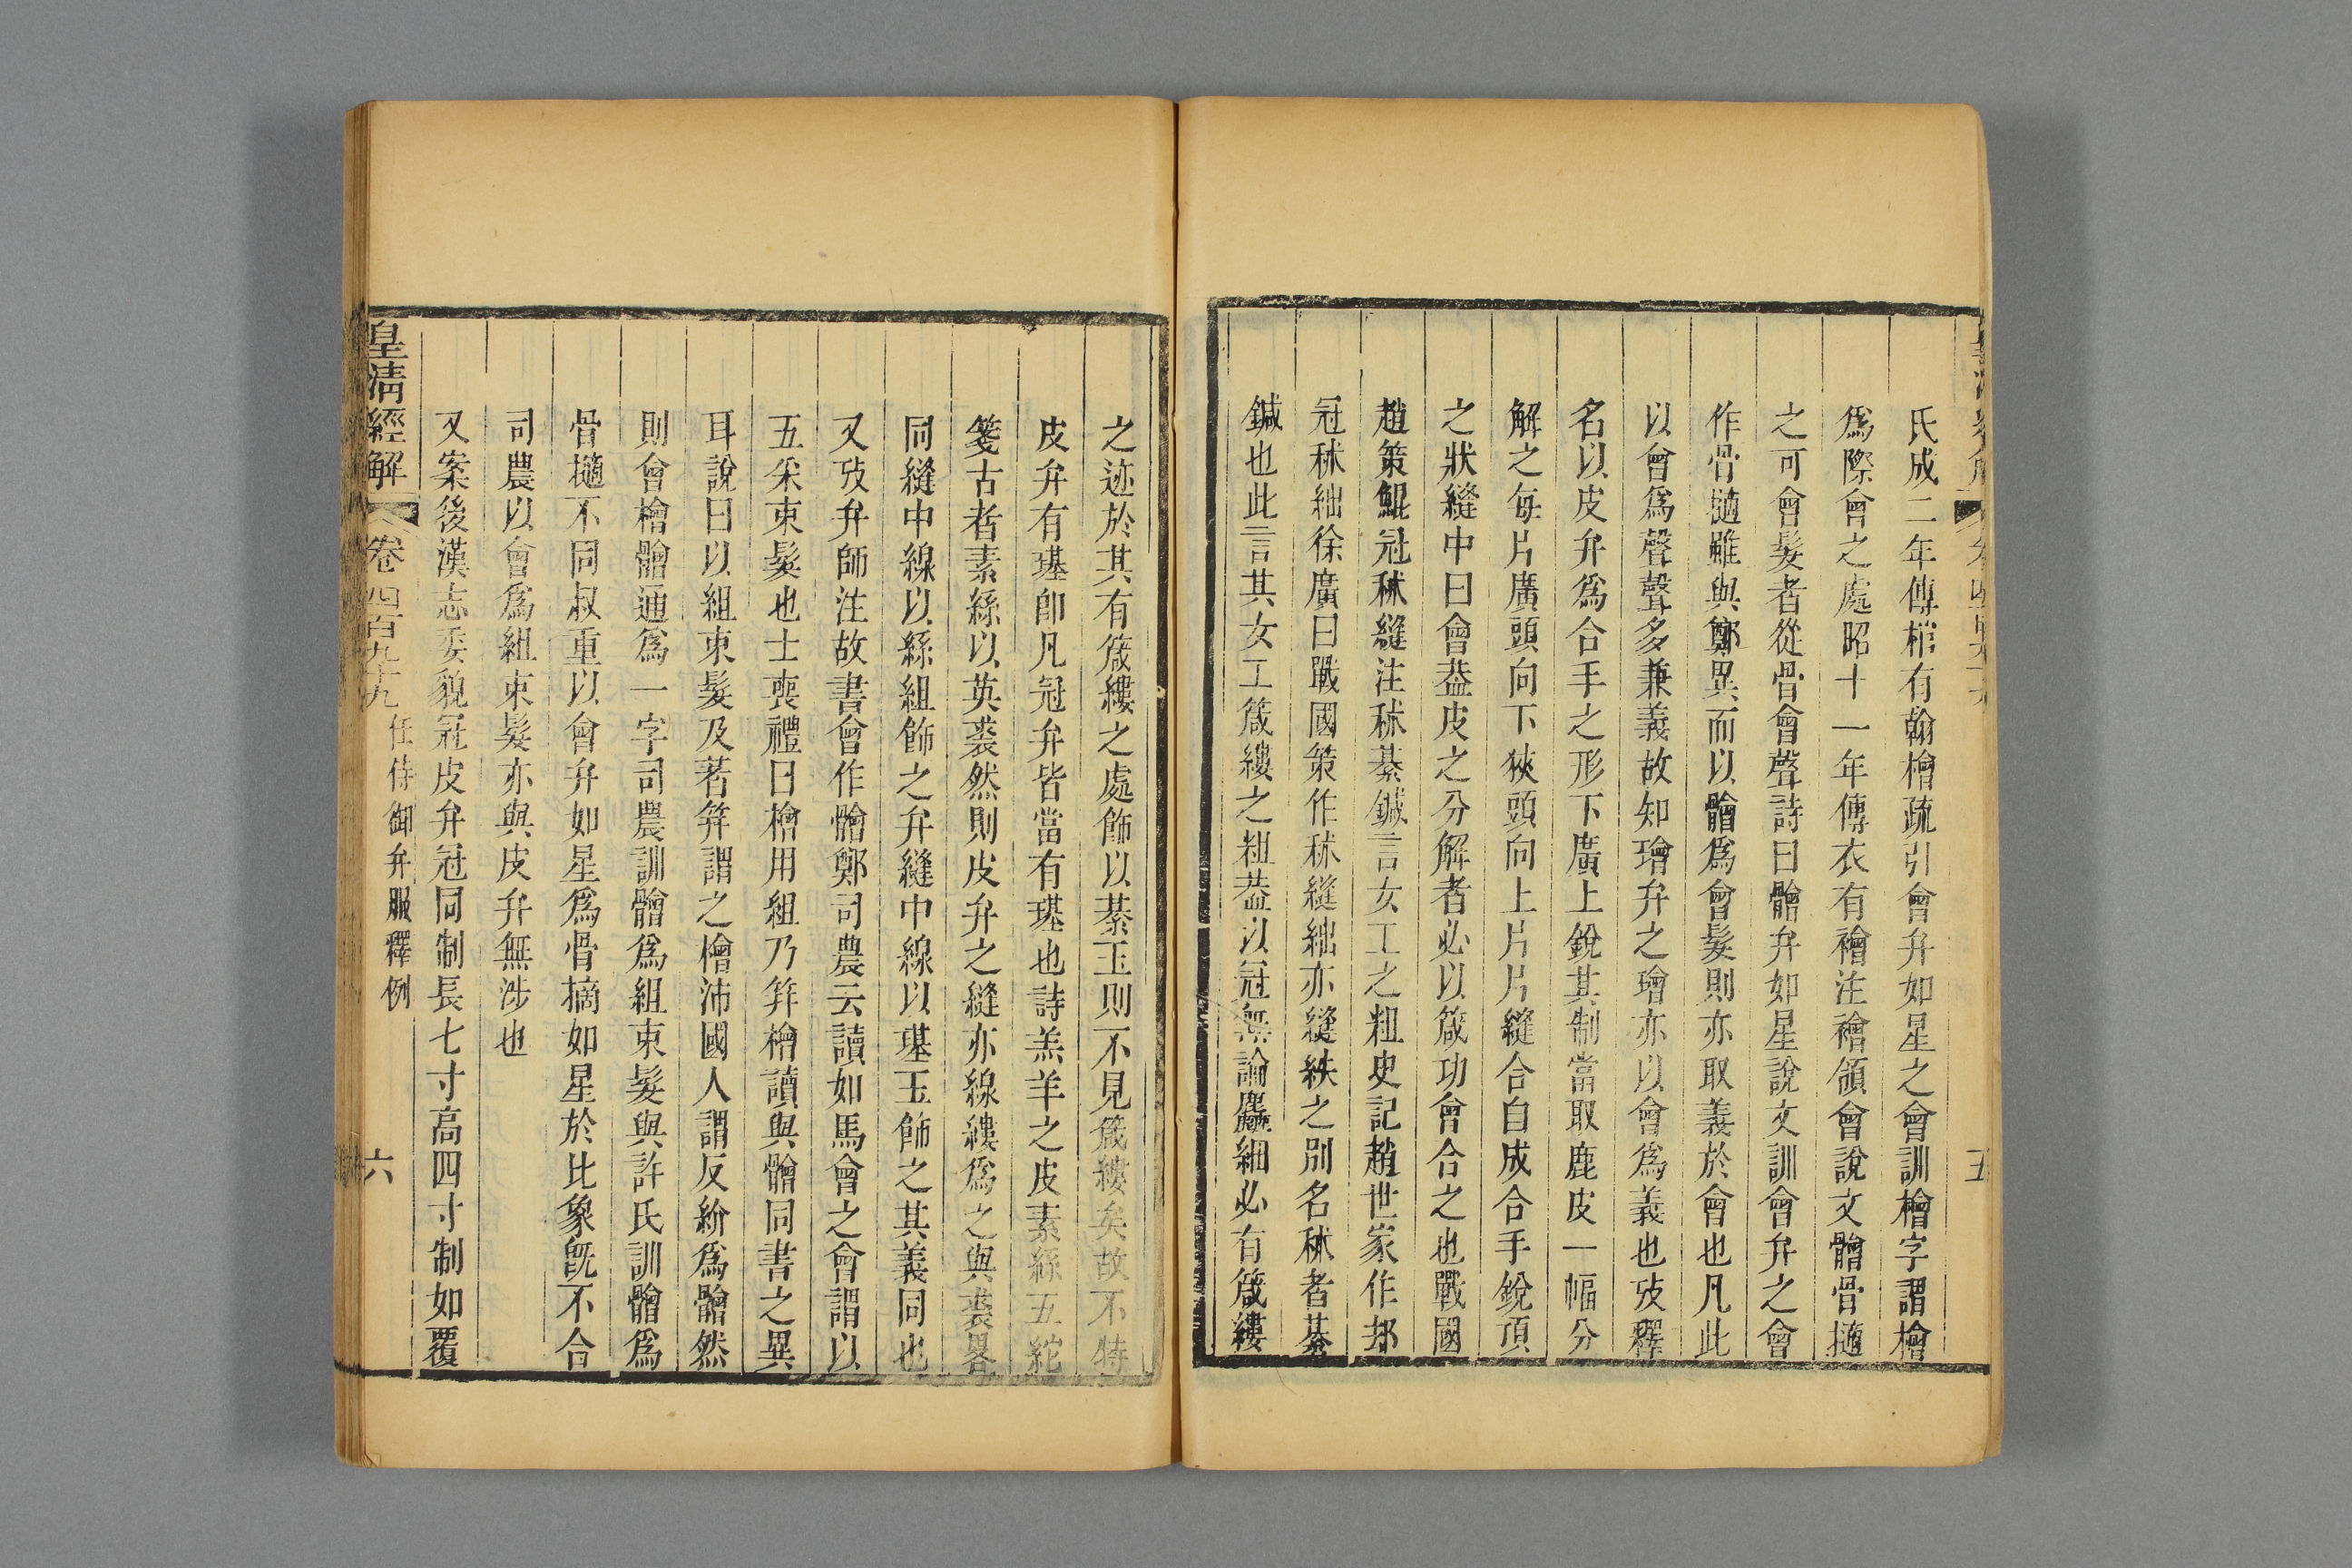 氏成二年傳棺有翰檜疏引會弁如星之會訓檜字謂檜
爲際會之處昭十一年傳衣有襘注襘領會說文䯤骨擿
之可會髮者從骨會聲詩曰䯤弁如星說文訓會弁之會
作骨擿雖與鄭異而以䯤爲會髮則亦取義於會也凡此
以會爲聲聲多兼義故知璯弁之璯亦以會爲義也攷釋
名以皮弁爲合手之形下廣上銳其制當取鹿皮一幅分
解之每片廣頭向下狹頭向上片片縫合自成合手銳頂
之狀縫中曰會蓋皮之分解者必以箴功會合之也戰國
趙策鯷冠秫縫注秫綦鍼言女工之粗史記趙世家作却
冠秫絀徐廣曰戰國策作秫縫絀亦縫紩之別名秫者綦
鍼也此言其女工箴縷之粗葢以冠無論麤細必有箴縷
五
之迹於其有箴縷之處飾以綦玉則不見箴縷矣故不特
皮弁有璂卽凡冠弁皆當有璂也詩羔羊之皮素絲五紽
箋古者素絲以英裘然則皮弁之縫亦線縷爲之與裘畧
同縫中線以絲組飾之弁縫中線以璂玉飾之其義同也
又攷弁師注故書會作䯤鄭司農云讀如馬會之會謂以
五采束髮也士喪禮曰檜用組乃筓檜讀與䯤同書之異
耳說曰以組束髮及著筓謂之檜沛國人謂反紒爲䯤然
則會檜䯤通爲一字司農訓䯤爲組束髮與許氏訓䯤爲
骨擿不同叔重以會弁如星爲骨摘如星於比象旣不合
司農以會爲組束髮亦與皮弁無涉也
又案後漢志委貌冠皮弁冠同制長七寸高四寸制如覆
皇淸經解 卷四百九十九 任侍御弁服釋例 六